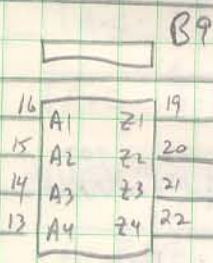 B9
16 A1 Z1 19
15 A2 Z2 20
14 A3 Z3 21
13 A4 Z4 22